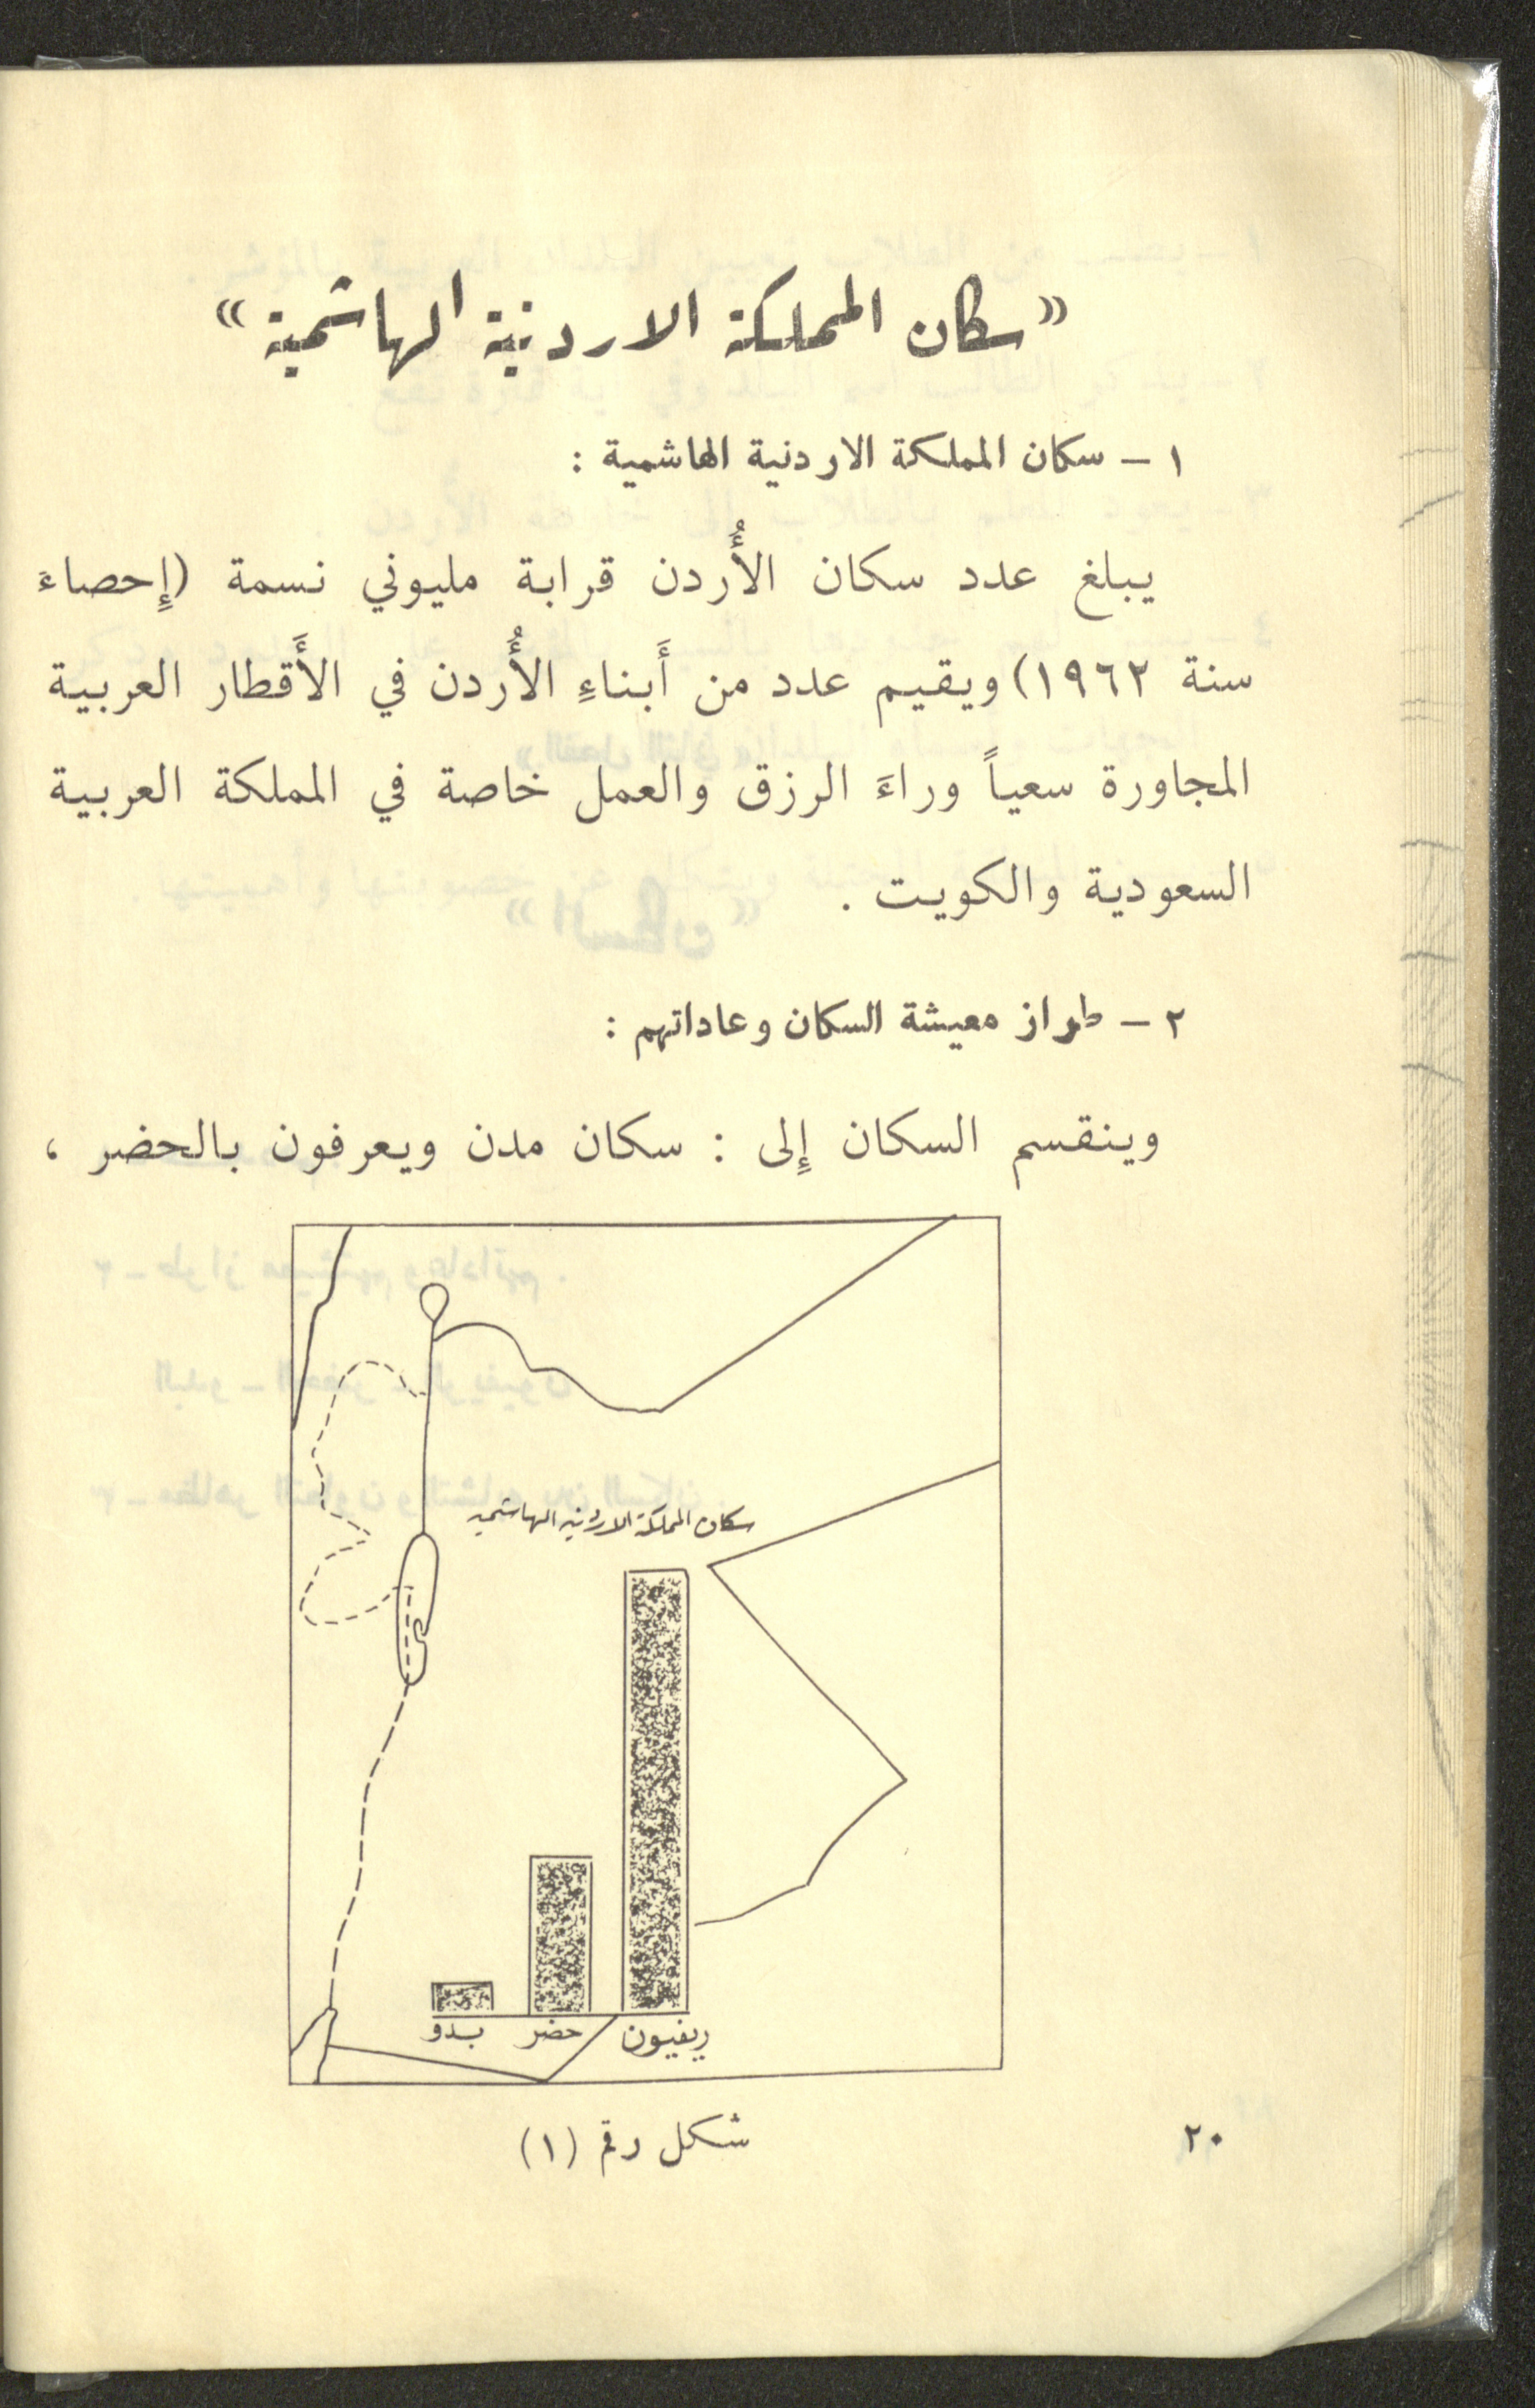 «سكان المملكة الاردنية الهاشمية»
١ - سكان المملكة الاردنية الهاشمية :
يبلغ عدد سكان الأُردن قرابة مليوني نسمة (إِحصاءَ
سنة ١٩٦٢) ويقيم عدد من أَبناءِ الأُردن في الأَقطار العربية
المجاورة سعياً وراءَ الرزق والعمل خاصة في المملكة العربية
السعودية والكويت .
٢ - طراز معيشة السكان وعاداتهم :
وينقسم السكان إِلى : سكان مدن ويعرفون بالحضر ،
سكان المملكة الاردنيه الهاشميه
ريفيون حضر بدو
شكل رقم (١)
٢٠